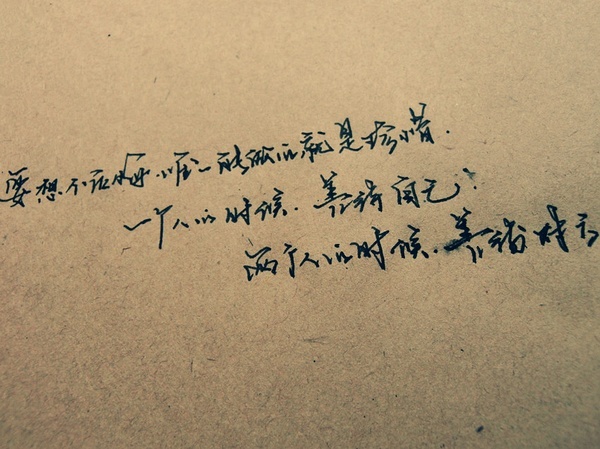 要想不后悔.唯一能做的就是珍惜.
一个人的时候.善待自己;
两个人的时候.善待对方